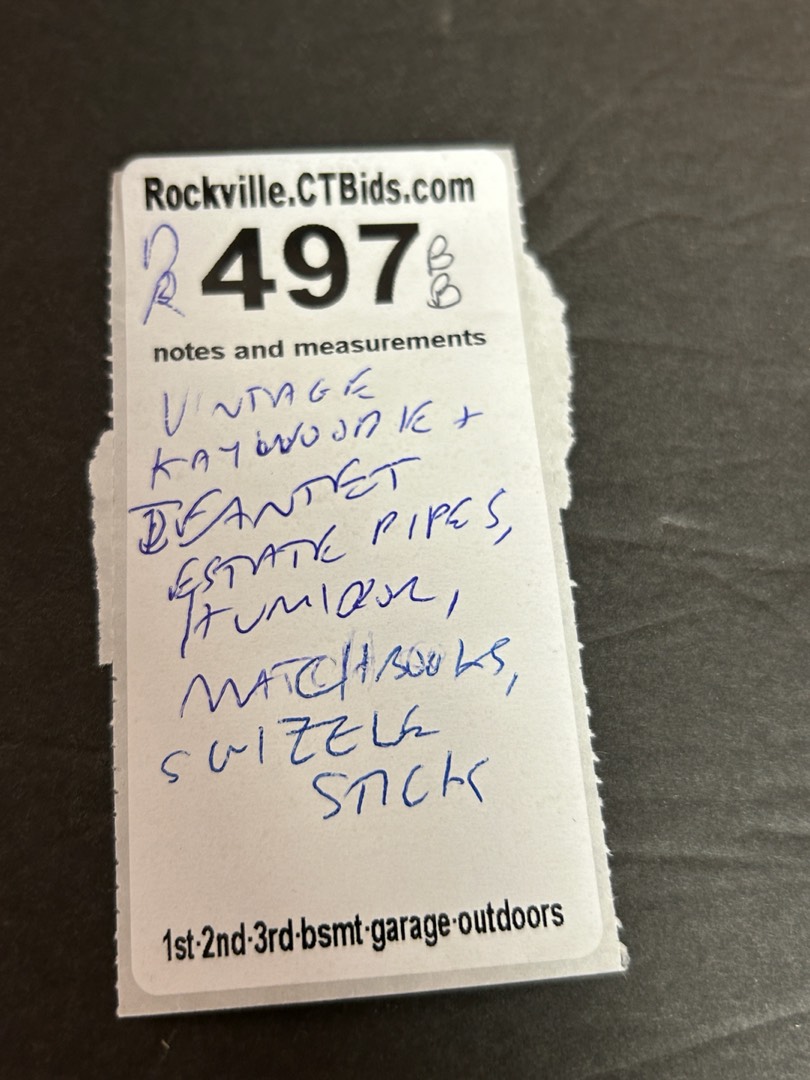 Rockville.CTBids.com
DR 497 BB
notes and measurements
VINTAGE
KAYWOODIE +
ESTATE PIPES,
HUMIDOR,
MATCHBOOKS,
SWIZZLE
STICK
1st·2nd·3rd·bsmt·garage·outdoors